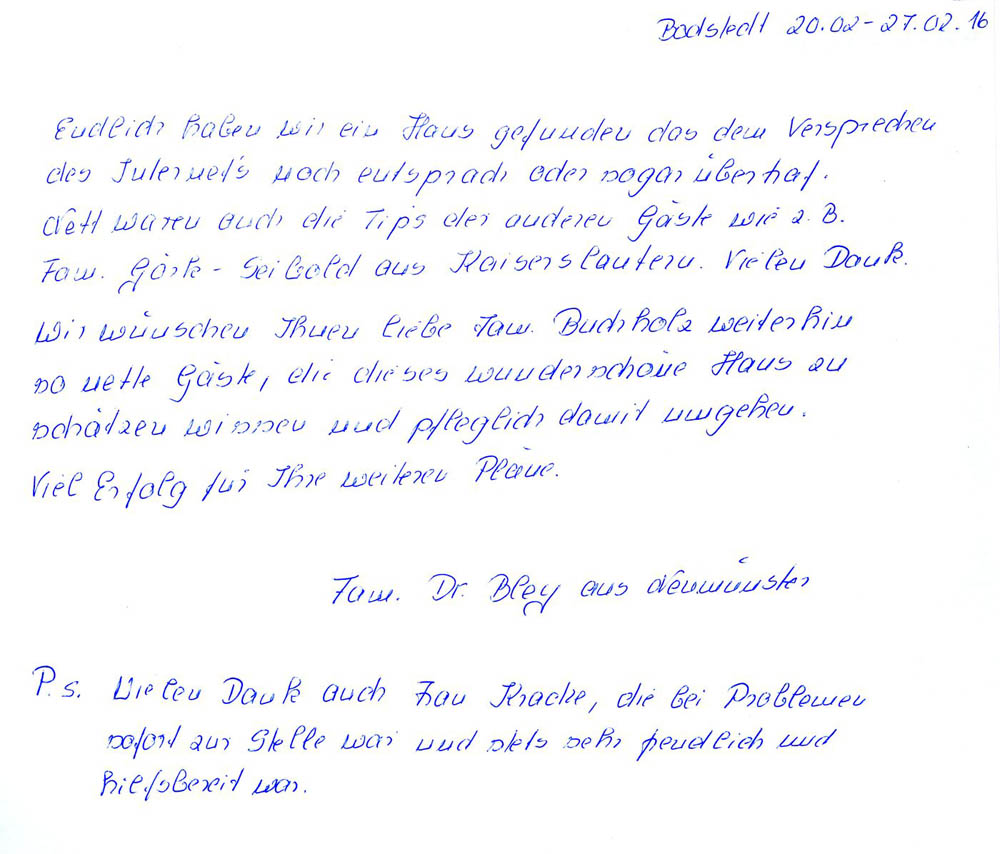 Bodstedt 20.02-27.02.16
Endlich haben wir ein Haus gefunden das dem Versprechen
des Internet's noch entsprach oder sogar übertraf.
Nett waren auch die Tips der anderen Gäste wie z.B.
Fam. Gärte-Seibold aus Kaiserslautern. Vielen Dank.
Wir wünschen Ihnen liebe Fam. Buchholz weiterhin
so nette Gäste, die dieses wunderschöne Haus zu
schätzen wissen und pfleglich damit umgehen.
Viel Erfolg für Ihre weiteren Pläne.
Fam. Dr. Bley aus Neumünster
P.s. Vielen Dank auch Frau Kracke, die bei Problemen
sofort zur Stelle war und stets sehr und
hilfsbereit war.